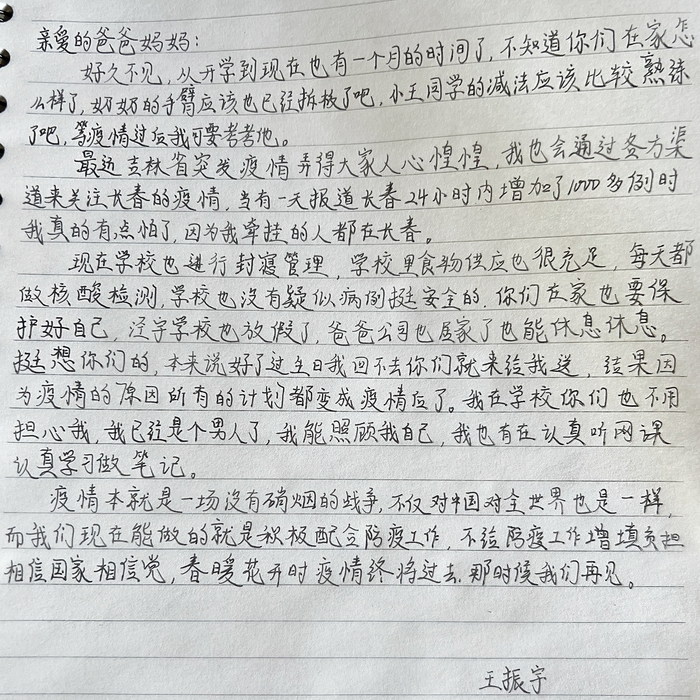 亲爱的爸爸妈妈:
好久不见,从开学到现在也有一个月的时间了,不知道你们在家怎
么样了,奶奶的手臂应该也已经拆板了吧,小王同学的减法应该比较熟练
了吧,等疫情过后我可要考考他。
最近吉林省突发疫情弄得大家人心惶惶,我也会通过各方渠
道来关注长春的疫情,当有一天报道长春24小时内增加了1000多例时
我真的有点怕了,因为我牵挂的人都在长春。
现在学校也进行封寝管理,学校里食物供应也很充足,每天都
做核酸检测,学校也没有疑似病例挺安全的,你们在家也要保
护好自己,泾宇学校也放假了,爸爸公司也居家了也能休息休息。
挺想你们的,本来说好了过生日我回不去你们就来给我送,结果因
为疫情的原因所有的计划都变成疫情后了。我在学校你们也不用
担心我,我已经是个男人了,我能照顾我自己,我也有在认真听网课
认真学习做笔记。
疫情本就是一场没有硝烟的战争,不仅对中国对全世界也是一样,
而我们现在能做的就是积极配合防疫工作,不给防疫工作增填负担
相信国家相信党,春暖花开时疫情终将过去.那时候我们再见。
王振宇